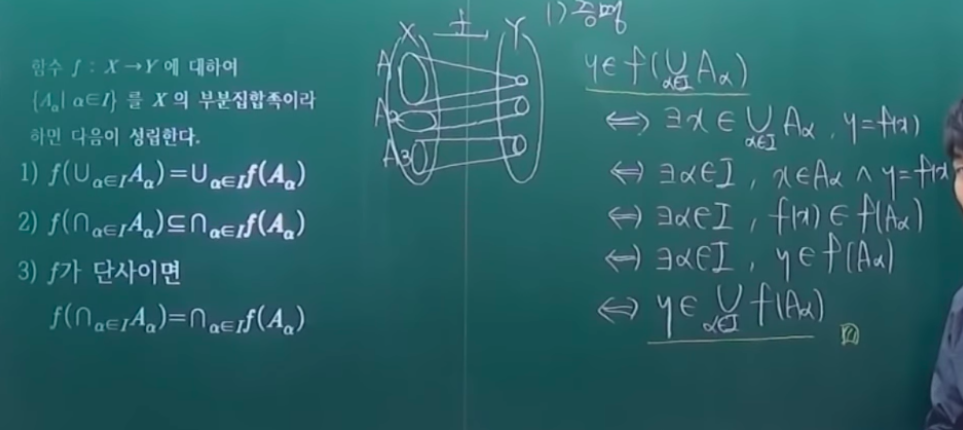 함수 f : X → Y 에 대하여
{Aα | α∈I} 를 X 의 부분집합족이라
하면 다음이 성립한다.
1) f(∪α∈I Aα)=∪α∈I f(Aα)
2) f(∩α∈I Aα)⊆∩α∈I f(Aα)
3) f가 단사이면
f(∩α∈I Aα)=∩α∈I f(Aα)
X f Y
A
A2
A3
1) 증명
y∈f(∪α∈I Aα)
⇔ ∃x ∈ ∪α∈I Aα, y=f(x)
⇔ ∃α∈I, x∈Aα ∧ y=f(x
⇔ ∃α∈I, f(x) ∈ f(Aα)
⇔ ∃α∈I, y∈f(Aα)
⇔ y∈ ∪α∈I f(Aα)